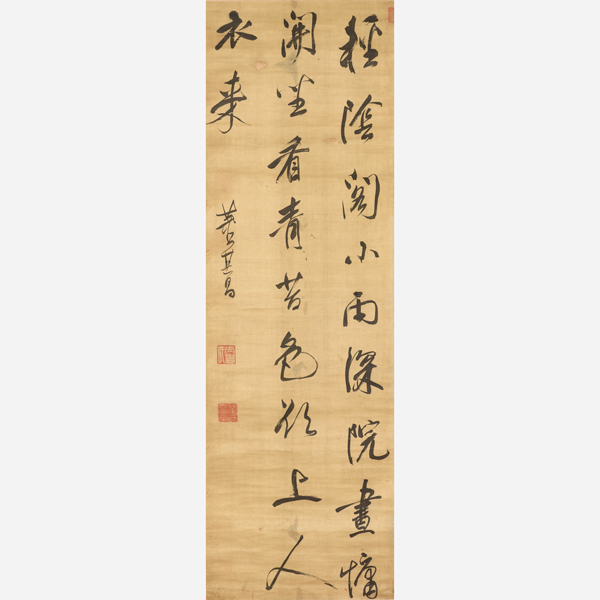 輕陰閣小雨深院晝慵
開坐看青苔色欲上人
衣來
董其昌